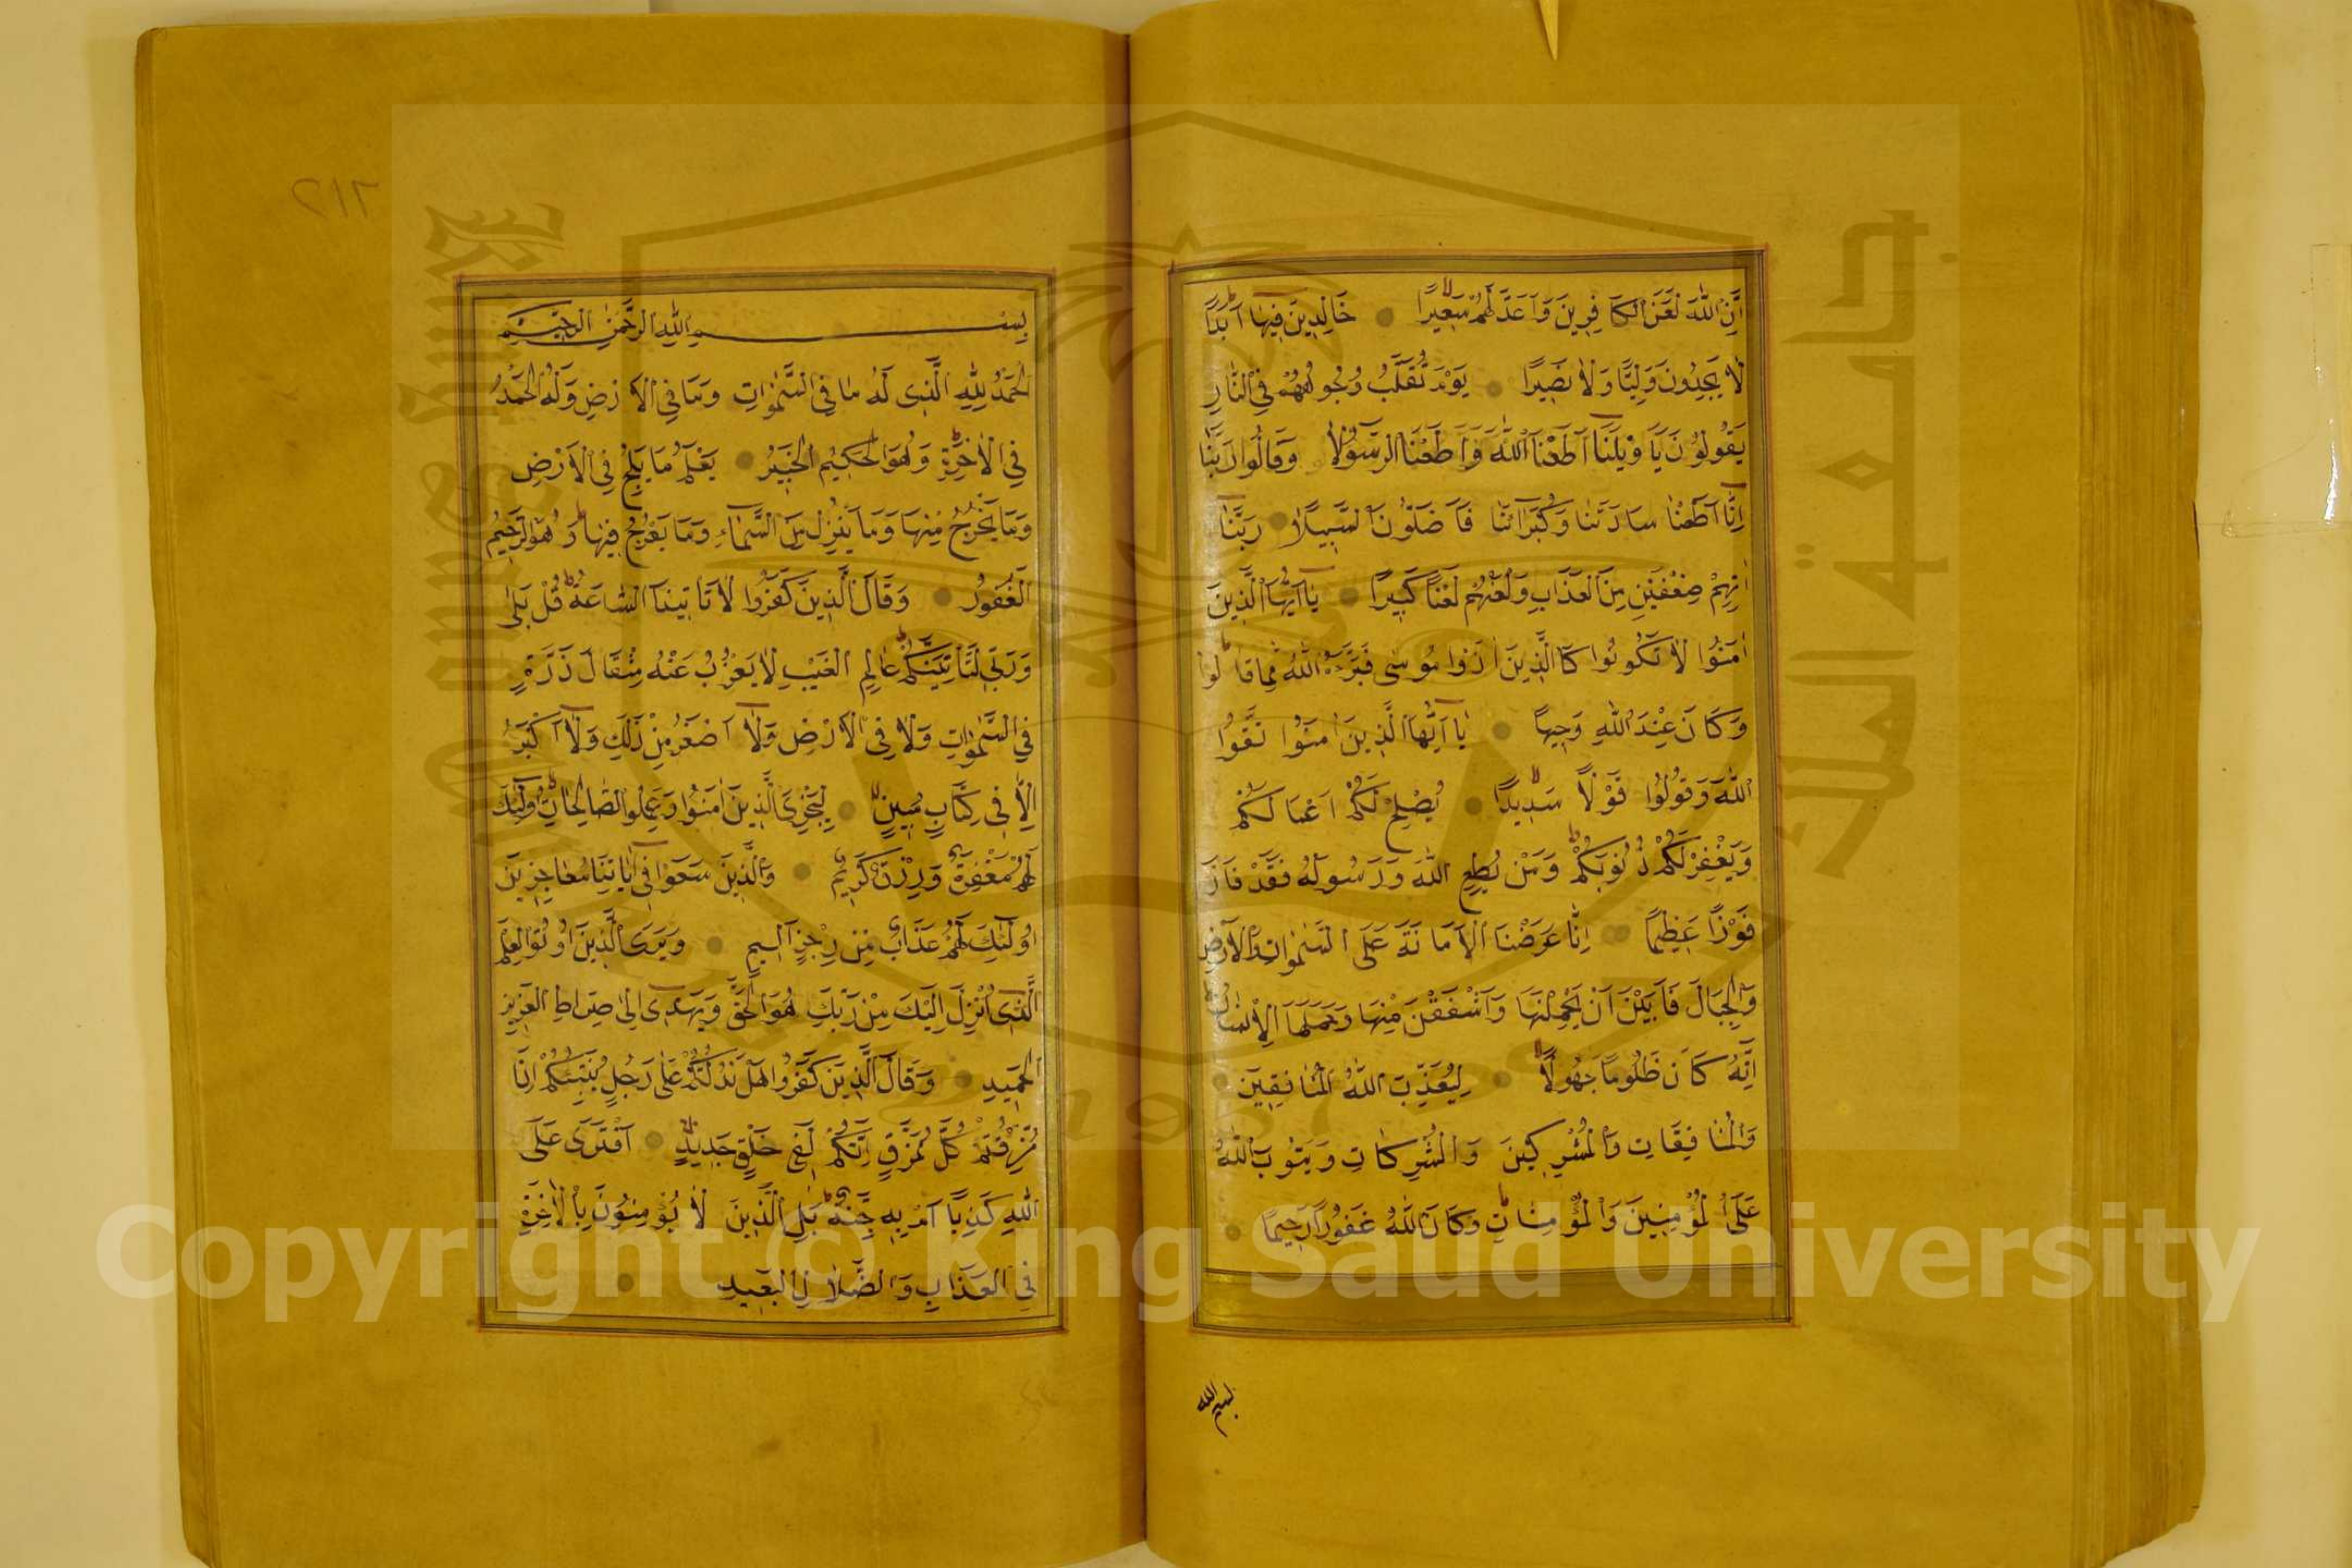 اِنَّ اللّٰهَ لَعَنَ الْكَافِرِينَ وَاَعَدَّ لَهُمْ سَعِيرًا خَالِدِينَ فِيهَا اَبَدًا
لَا يَجِدُونَ وَلِيًّا وَلَا نَصِيرًا يَوْمَ تُقَلَّبُ وُجُوهُهُمْ فِي النَّارِ
يَقُولُونَ يَا وَيْلَنَا اَطَعْنَا اللّٰهَ وَاَطَعْنَا الرَّسُولَا وَقَالُوا رَبَّنَا
اِنَّا اَطَعْنَا سَادَتَنَا وَكُبَرَائَنَا فَاَضَلُّونَا السَّبِيلَا رَبَّنَا
اٰتِهِمْ ضِعْفَيْنِ مِنَ الْعَذَابِ وَالْعَنْهُمْ لَعْنًا كَبِيرًا يَا اَيُّهَا الَّذِينَ
اٰمَنُوا لَا تَكُونُوا كَالَّذِينَ اٰذَوْا مُوسٰى فَبَرَّاَهُ اللّٰهُ مِمَّا قَالُوا
وَكَانَ عِنْدَ اللّٰهِ وَجِيهًا يَا اَيُّهَا الَّذِينَ اٰمَنُوا اتَّقُوا
اللّٰهَ وَقُولُوا قَوْلًا سَدِيدًا يُصْلِحْ لَكُمْ اَعْمَالَكُمْ
وَيَغْفِرْ لَكُمْ ذُنُوبَكُمْ وَمَنْ يُطِعِ اللّٰهَ وَرَسُولَهُ فَقَدْ فَازَ
فَوْزًا عَظِيمًا اِنَّا عَرَضْنَا الْاَمَانَةَ عَلَى السَّمٰوَاتِ وَالْاَرْضِ
وَالْجِبَالِ فَاَبَيْنَ اَنْ يَحْمِلْنَهَا وَاَشْفَقْنَ مِنْهَا وَحَمَلَهَا الْاِنْسَانُ
اِنَّهُ كَانَ ظَلُومًا جَهُولًا لِيُعَذِّبَ اللّٰهُ الْمُنَافِقِينَ
وَالْمُنَافِقَاتِ وَالْمُشْرِكِينَ وَالْمُشْرِكَاتِ وَيَتُوبَ اللّٰهُ
عَلَى الْمُؤْمِنِينَ وَالْمُؤْمِنَاتِ وَكَانَ اللّٰهُ غَفُورًا رَحِيمًا
بسم الله
٦١٢
بِسْمِ اللّٰهِ الرَّحْمٰنِ الرَّحِيمِ
اَلْحَمْدُ لِلّٰهِ الَّذِي لَهُ مَا فِي السَّمٰوَاتِ وَمَا فِي الْاَرْضِ وَلَهُ الْحَمْدُ
فِي الْاٰخِرَةِ وَهُوَ الْحَكِيمُ الْخَبِيرُ يَعْلَمُ مَا يَلِجُ فِي الْاَرْضِ
وَمَا يَخْرُجُ مِنْهَا وَمَا يَنْزِلُ مِنَ السَّمَاءِ وَمَا يَعْرُجُ فِيهَا وَهُوَ الرَّحِيمُ
الْغَفُورُ وَقَالَ الَّذِينَ كَفَرُوا لَا تَأْتِينَا السَّاعَةُ قُلْ بَلٰى
وَرَبِّي لَتَأْتِيَنَّكُمْ عَالِمِ الْغَيْبِ لَا يَعْزُبُ عَنْهُ مِثْقَالُ ذَرَّةٍ
فِي السَّمٰوَاتِ وَلَا فِي الْاَرْضِ وَلَا اَصْغَرُ مِنْ ذٰلِكَ وَلَا اَكْبَرُ
اِلَّا فِي كِتَابٍ مُبِينٍ لِيَجْزِيَ الَّذِينَ اٰمَنُوا وَعَمِلُوا الصَّالِحَاتِ اُولٰئِكَ
لَهُمْ مَغْفِرَةٌ وَرِزْقٌ كَرِيمٌ وَالَّذِينَ سَعَوْا فِي اٰيَاتِنَا مُعَاجِزِينَ
اُولٰئِكَ لَهُمْ عَذَابٌ مِنْ رِجْزٍ اَلِيمٍ وَيَرَى الَّذِينَ اُوتُوا الْعِلْمَ
الَّذِي اُنْزِلَ اِلَيْكَ مِنْ رَبِّكَ هُوَ الْحَقَّ وَيَهْدِي اِلٰى صِرَاطِ الْعَزِيزِ
الْحَمِيدِ وَقَالَ الَّذِينَ كَفَرُوا هَلْ نَدُلُّكُمْ عَلٰى رَجُلٍ يُنَبِّئُكُمْ اِذَا
مُزِّقْتُمْ كُلَّ مُمَزَّقٍ اِنَّكُمْ لَفِي خَلْقٍ جَدِيدٍ اَفْتَرٰى عَلَى
اللّٰهِ كَذِبًا اَمْ بِهِ جِنَّةٌ بَلِ الَّذِينَ لَا يُؤْمِنُونَ بِالْاٰخِرَةِ
فِي الْعَذَابِ وَالضَّلَالِ الْبَعِيدِ
Copyright © King Saud University
جامعة الملك سعود
King Saud University
1957